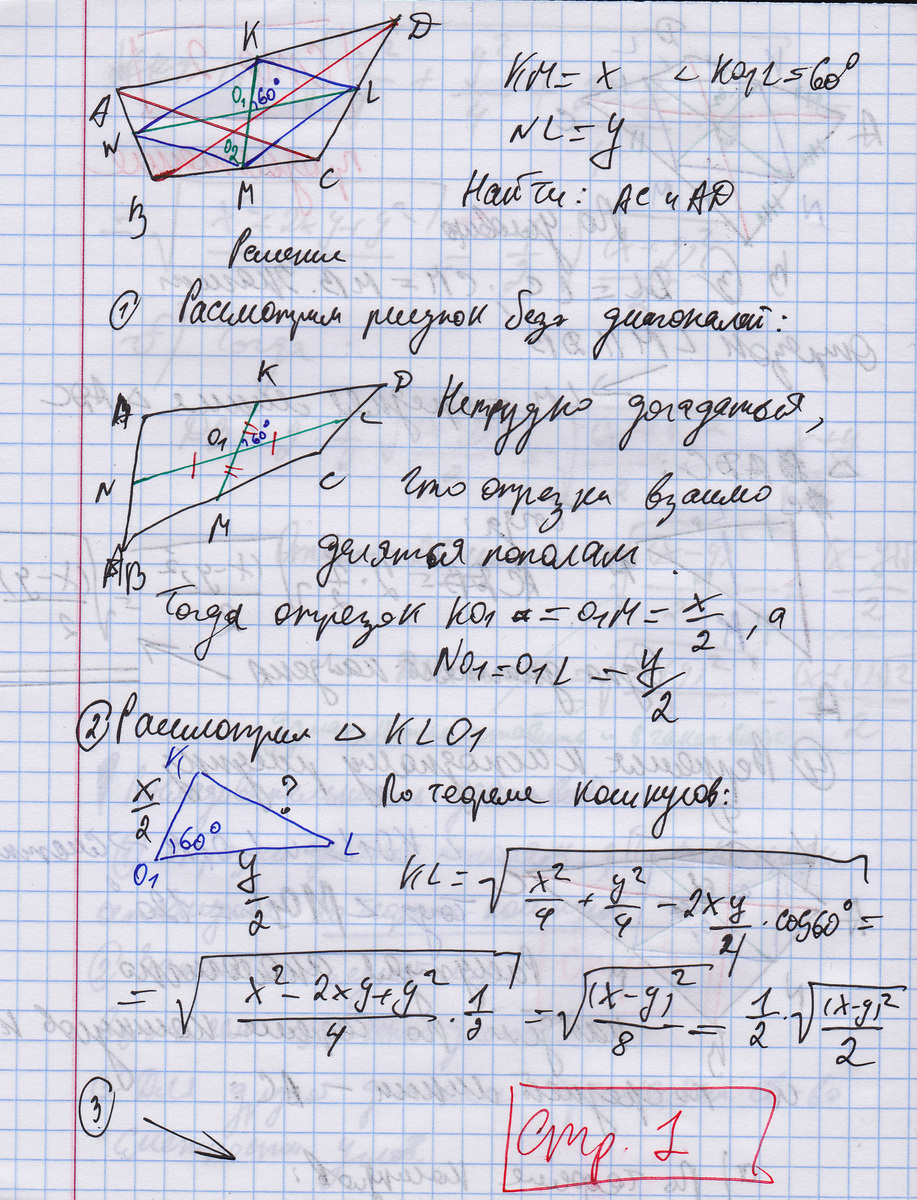 D
K
A
O1 60°
L
N
O2
B
M
C
KM = x ∠ KO1L = 60°
NL = y
Найти: AC и AD
Решение
① Рассмотрим рисунок без диагоналей:
K
D
A
O1 60°
L
N
C
M
B
Нетрудно догадаться,
что отрезки взаимо
делятся пополам.
Тогда отрезок KO1 = O1M = x/2, а
NO1 = O1L = y/2
② Рассмотрим △ KLO1
K
x/2
?
60°
O1
L
y/2
По теореме косинусов:
KL = √(x²/4 + y²/4 − 2xy/4 · cos60°) =
= √((x² − 2xy + y²)/4 · 1/2) = √((x−y)²/8) = 1/2 · √((x−y)²/2)
③
Стр. 1